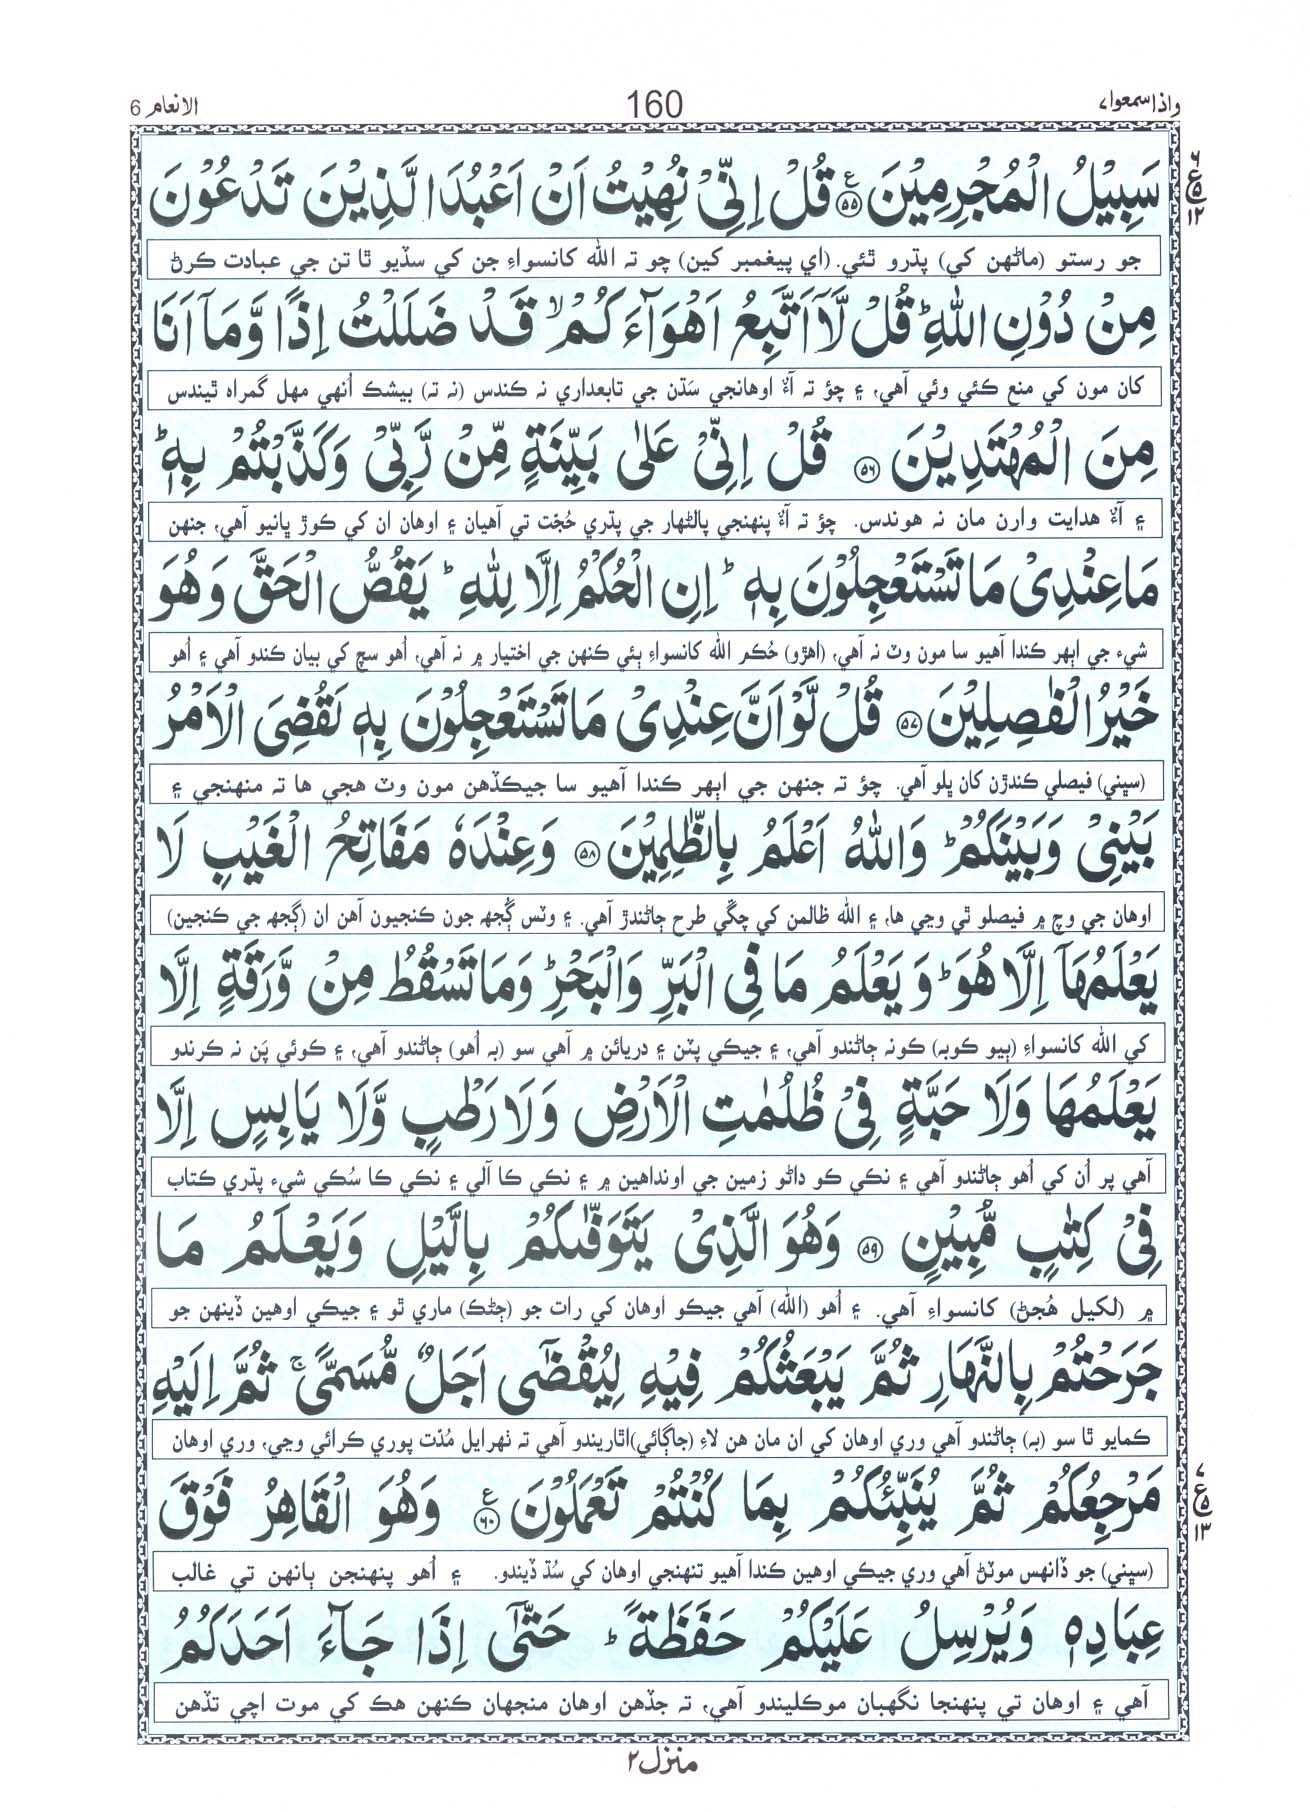 واذاسمعوا۷ 160 الانعام 6
سَبِيْلُ الْمُجْرِمِيْنَ ﴿۵۵﴾ قُلْ اِنِّىْ نُهِيْتُ اَنْ اَعْبُدَ الَّذِيْنَ تَدْعُوْنَ
جو رستو (ماڻهن کي) پڌرو ٿئي. (اي پيغمبر کين) چو ته الله کانسواءِ جن کي سڏيو ٿا تن جي عبادت ڪرڻ
مِنْ دُوْنِ اللّٰهِ ؕ قُلْ لَّاۤ اَتَّبِعُ اَهْوَآءَكُمْ ۙ قَدْ ضَلَلْتُ اِذًا وَّمَاۤ اَنَا
کان مون کي منع ڪئي وئي آهي، ۽ چؤ ته آءٌ اوهانجي سَڌن جي تابعداري نه ڪندس (نه ته) بيشڪ اُنهي مهل گمراه ٿيندس
مِنَ الْمُهْتَدِيْنَ ﴿۵۶﴾ قُلْ اِنِّىْ عَلٰى بَيِّنَةٍ مِّنْ رَّبِّىْ وَكَذَّبْتُمْ بِهٖ ؕ
۽ آءٌ هدايت وارن مان نہ هوندس. چؤ ته آءٌ پنهنجي پالڻهار جي پڌري حُجّت تي آهيان ۽ اوهان ان کي ڪوڙ ڀانيو آهي، جنهن
مَا عِنْدِىْ مَا تَسْتَعْجِلُوْنَ بِهٖ ؕ اِنِ الْحُكْمُ اِلَّا لِلّٰهِ ؕ يَقُصُّ الْحَقَّ وَهُوَ
شيء جي اٻهر ڪندا آهيو سا مون وٽ نہ آهي، (اهڙو) حُڪم الله کانسواءِ ٻئي ڪنهن جي اختيار ۾ نہ آهي، اُهو سچ کي بيان ڪندو آهي ۽ اُهو
خَيْرُ الْفٰصِلِيْنَ ﴿۵۷﴾ قُلْ لَّوْ اَنَّ عِنْدِىْ مَا تَسْتَعْجِلُوْنَ بِهٖ لَقُضِىَ الْاَمْرُ
(سڀني) فيصلي ڪندڙن کان ڀلو آهي. چؤ ته جنهن جي اٻهر ڪندا آهيو سا جيڪڏهن مون وٽ هجي ها ته منهنجي ۽
بَيْنِىْ وَبَيْنَكُمْ ؕ وَاللّٰهُ اَعْلَمُ بِالظّٰلِمِيْنَ ﴿۵۸﴾ وَعِنْدَهٗ مَفَاتِحُ الْغَيْبِ لَا
اوهان جي وچ ۾ فيصلو ٿي وڃي ها، ۽ الله ظالمن کي چڱي طرح ڄاڻندڙ آهي. ۽ وٽس ڳُجھہ جون ڪنجيون آهن ان (ڳجھہ جي ڪنجين)
يَعْلَمُهَاۤ اِلَّا هُوَ ؕ وَيَعْلَمُ مَا فِى الْبَرِّ وَالْبَحْرِ ؕ وَمَا تَسْقُطُ مِنْ وَّرَقَةٍ اِلَّا
کي الله کانسواءِ (ٻيو ڪوبہ) ڪونہ ڄاڻندو آهي، ۽ جيڪي پٽن ۽ دريائن ۾ آهي سو (بہ اُهو) ڄاڻندو آهي، ۽ ڪوئي پَن نہ ڪرندو
يَعْلَمُهَا وَلَا حَبَّةٍ فِىْ ظُلُمٰتِ الْاَرْضِ وَلَا رَطْبٍ وَّلَا يَابِسٍ اِلَّا
آهي پر اُن کي اُهو ڄاڻندو آهي ۽ نڪي ڪو داڻو زمين جي اونداهين ۾ ۽ نڪي ڪا آلي ۽ نڪي ڪا سُڪي شيء پڌري ڪتاب
فِىْ كِتٰبٍ مُّبِيْنٍ ﴿۵۹﴾ وَهُوَ الَّذِىْ يَتَوَفّٰىكُمْ بِالَّيْلِ وَيَعْلَمُ مَا
۾ (لکيل هُجڻ) کانسواءِ آهي. ۽ اُهو (الله) آهي جيڪو اوهان کي رات جو (ڄڻڪ) ماري ٿو ۽ جيڪي اوهين ڏينهن جو
جَرَحْتُمْ بِالنَّهَارِ ثُمَّ يَبْعَثُكُمْ فِيْهِ لِيُقْضٰۤى اَجَلٌ مُّسَمًّى ۚ ثُمَّ اِلَيْهِ
ڪمايو ٿا سو (بہ) ڄاڻندو آهي وري اوهان کي ان مان هن لاءِ (جاڳائي) اٿاريندو آهي ته ٺهرايل مُدّت پوري ڪرائي وڃي، وري اوهان
مَرْجِعُكُمْ ثُمَّ يُنَبِّئُكُمْ بِمَا كُنْتُمْ تَعْمَلُوْنَ ﴿۶۰﴾ وَهُوَ الْقَاهِرُ فَوْقَ
(سڀني) جو ڏانهس موٽڻ آهي وري جيڪي اوهين ڪندا آهيو تنهنجي اوهان کي سُڌ ڏيندو. ۽ اُهو پنهنجن ٻانهن تي غالب
عِبَادِهٖ وَيُرْسِلُ عَلَيْكُمْ حَفَظَةً ؕ حَتّٰۤى اِذَا جَآءَ اَحَدَكُمُ
آهي ۽ اوهان تي پنهنجا نگهبان موڪليندو آهي، ته جڏهن اوهان منجهان ڪنهن هڪ کي موت اچي تڏهن
منزل۲